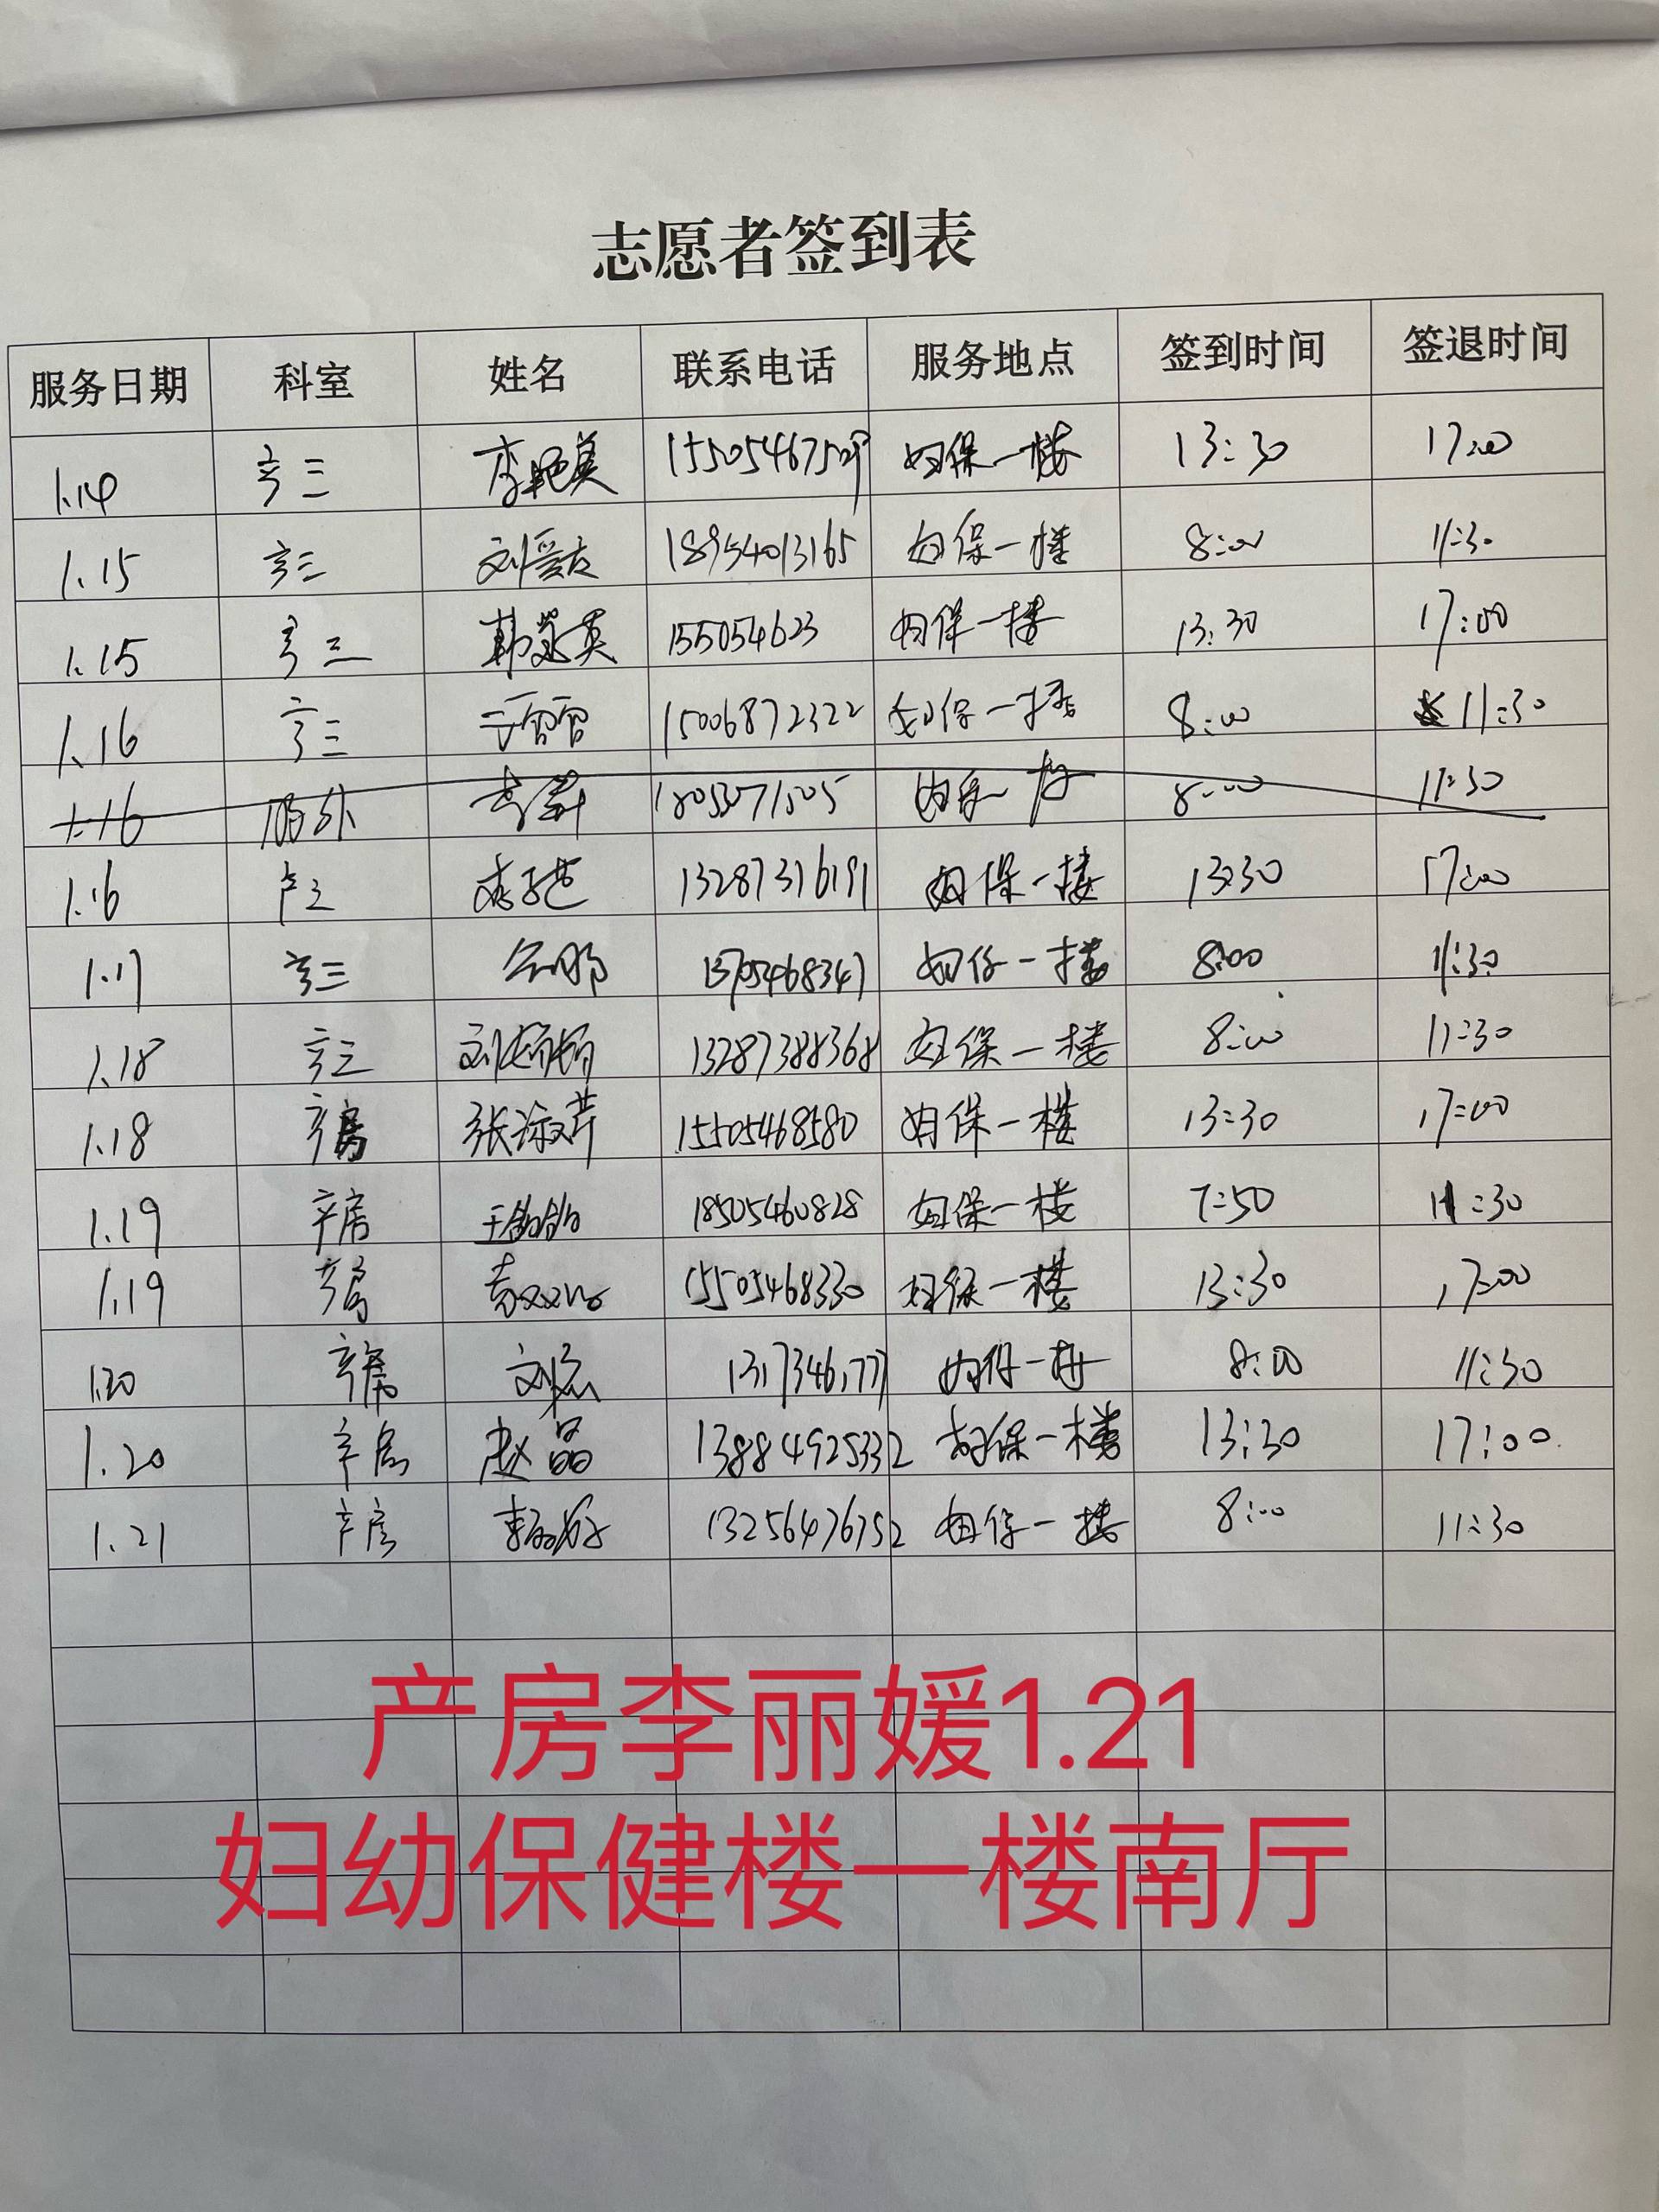 志愿者签到表
服务日期 科室 姓名 联系电话 服务地点 签到时间 签退时间
1.14 产三 李艳美 妇保一楼 13:30 17:00
1.15 产三 刘爱友 18954013165 妇保一楼 8:00 11:30
1.15 产三 韩 英 155054623 妇保一楼 13:30 17:00
1.16 产三 15006872322 妇保一楼 8:00 11:30
1.16 8:00 11:30
1.16 产三 13287316191 妇保一楼 13:30 17:00
1.17 产三 妇保一楼 8:00 11:30
1.18 产三 刘娇娇 13287388368 妇保一楼 8:00 11:30
1.18 产房 张淑芹 15505468580 妇保一楼 13:30 17:00
1.19 产房 18505460828 妇保一楼 7:50 11:30
1.19 产房 15505468330 妇保一楼 13:30 17:00
1.20 产房 妇保一楼 8:00 11:30
1.20 产房 赵晶 13884925332 妇保一楼 13:30 17:00
1.21 产房 李丽媛 13256476752 妇保一楼 8:00 11:30
产房李丽媛1.21
妇幼保健楼一楼南厅